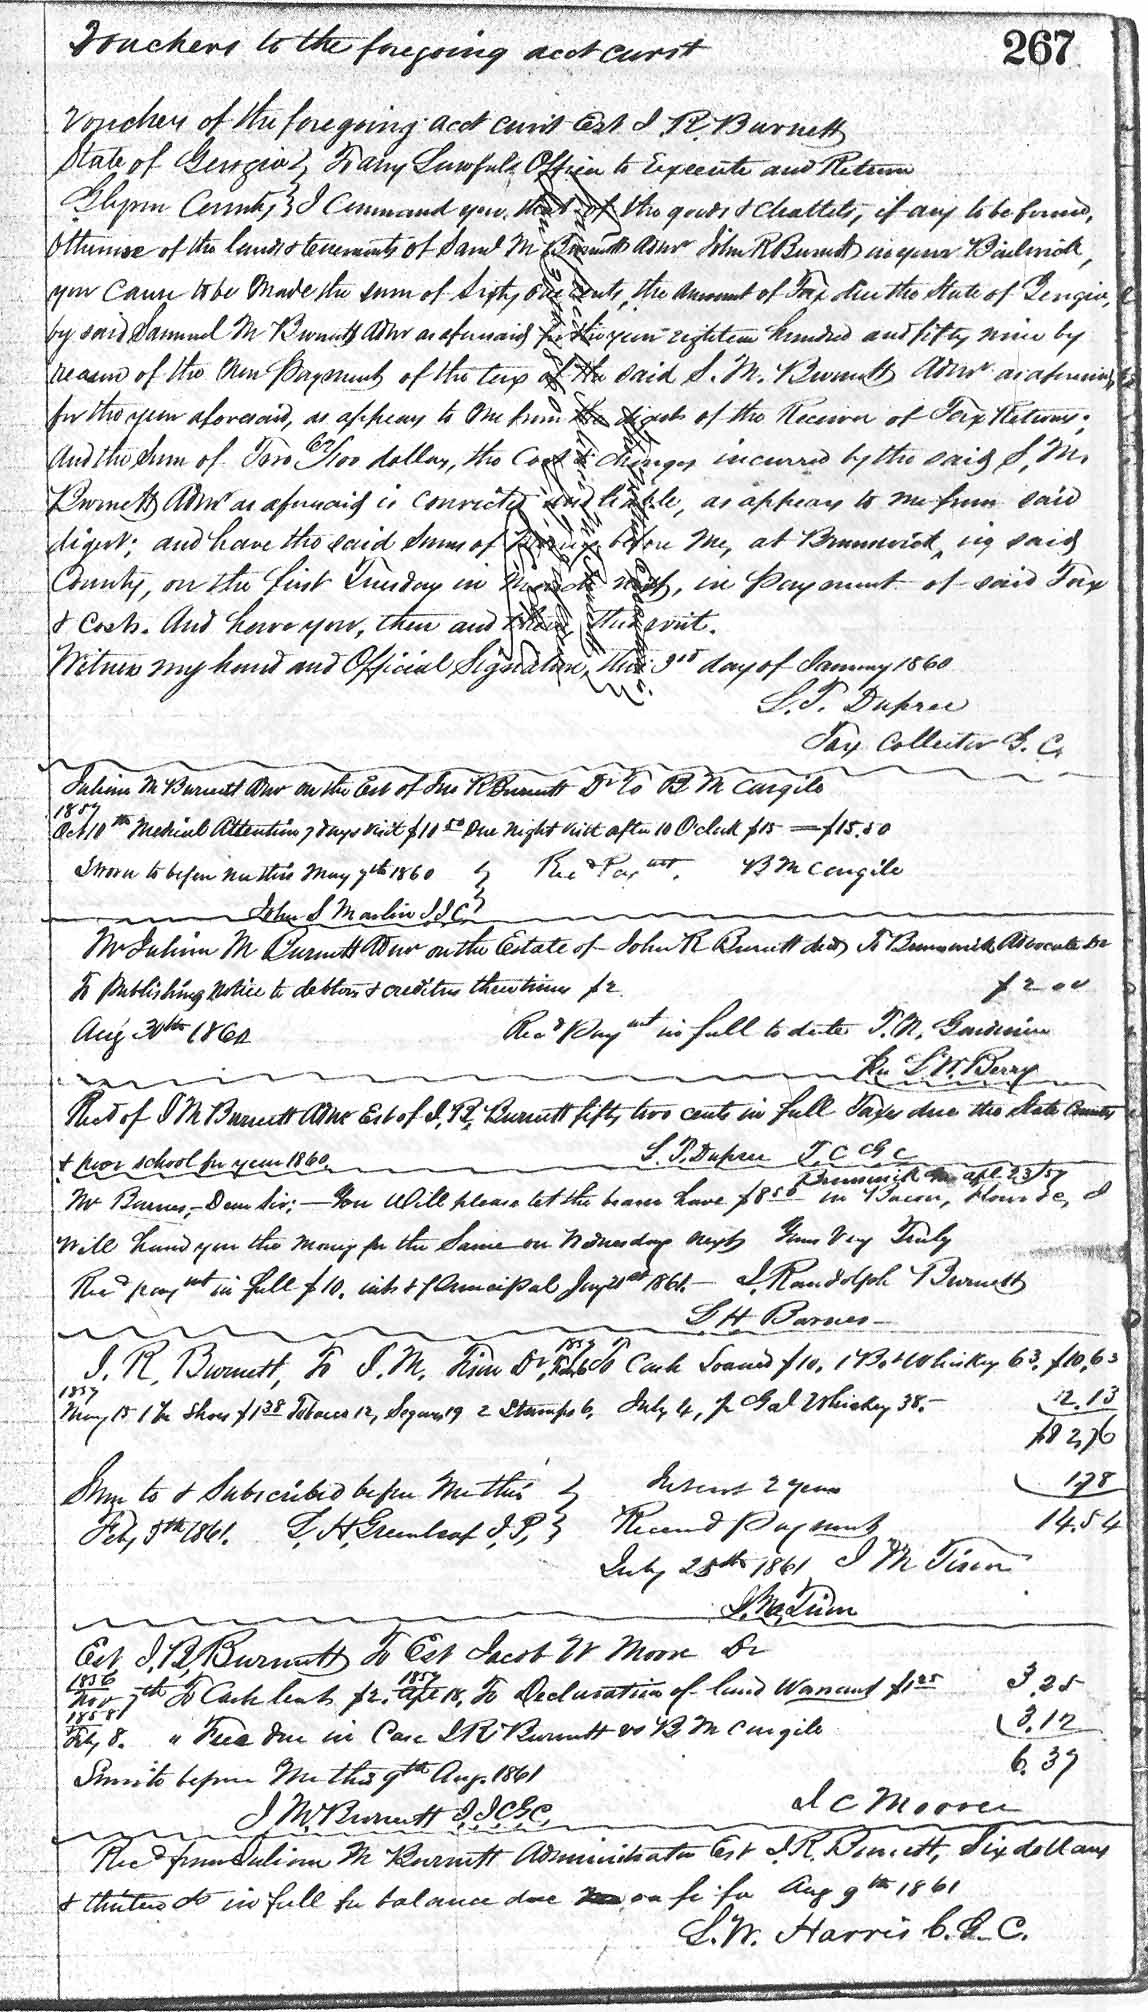 Vouchers to the foregoing acct curst
267
Vouchers of the foregoing acct curst Est J. R. Burnett
State of Georgia } To any Lawful Officer to Execute and Return
Glynn County } I Command you, that of the goods & Chattels, if any to be found,
Otherwise of the lands & tenements of Saml M Burnett Admr John R Burnett in your Bailiwick,
you Cause to be Made the sum of Sixty One cents, the Amount of Tax due the State of Georgia,
by said Samuel M Burnett Admr as aforesaid for the year eighteen hundred and fifty nine by
reason of the Non Payment of the tax of the said S. M. Burnett Admr as aforesaid
for the year aforesaid, as appears to Me from the digests of the Receiver of Tax Returns;
And the Sum of Two /100 dollars, the Cost & Charges incurred by the said S, M,
Burnett Admr as aforesaid is convicted and liable, as appears to me from said
digest; and have the said Sums of Money before Me, at Brunswick, in said
County, on the first Tuesday in March next, in Payment of said Tax
& Costs. And have you, then and there this writ.
Witness my hand and Official Signature, this 3rd day of January 1860
L. T. Dupree
Tax Collector G. C,
Julius M Burnett Admr on the Est of Jno R Burnett Dr To B M Cargile
1857
Oct 10th Medical Attention 7 days visit $10 50 One Night visit after 10 Oclock $15 — $15.50
Sworn to before me this May 7th 1860 } Recd Paymt. B M Cargile
John S Marlin J I C }
Mr Julius M Burnett Admr on the Estate of John R Burnett decd To Brunswick Advocate Dr
To Publishing Notice to debtors & creditors three times $2. $2 00
Aug 30th 1860 Recd Paymt in full to date T. N. Gardiner
Per L W. Berry
Recd of J M Burnett Admr Est of J, R, Burnett fifty two cents in full Taxes due the State County
& poor school for year 1860. L. T. Dupree T. C G C
Brunswick Apl 23/57
Mr Barnes, Dear Sir; — You Will please let the bearer have $8 50 in Bacon, flour &c, I
Will hand you the Money for the Same on Wednesday next, Yours Very Truly
Recd paymt in full $10. ints & Principal Jany 21st 1861 — J. Randolph Burnett
L H. Barnes —
J. R, Burnett, To J. M. Tison Dr, 1857 Feb 6 To Cash Loaned $10, 1 B. Whiskey 63, $10,63
1857
May 15 1 Pr Shoes $1 38 Tobacco 12, Segars 19 2 Stamps 6, July 4, ½ Gal Whiskey 38. — 2.13
$12,76
Sworn to & Subscribed before Me this } Interest 2 years 1,78
Feby 5th 1861. L, H, Greenleaf J. P, } Received Payment 14.54
July 25th 1861 J M Tison
J. M. Tison
Est J. R, Burnett To Est Jacob W Moore Dr
1856 1857
Nov 7th To Cash lent $2. Apl 18, To Declaration of land Warrant $1 25 3.25
1858
Feby 8. " Fees due in Case J R Burnett vs B M Cargile 3.12
6.37
Sworn to before Me this 9th Aug. 1861
J M. Burnett J, I, C, G, C, J C Moore
Recd from Julius M Burnett Administrator Est J. R. Burnett, Six dollars
& thirteen cts in full for balance due on fi fa Aug 9th 1861
L. W. Harris C. G. C.